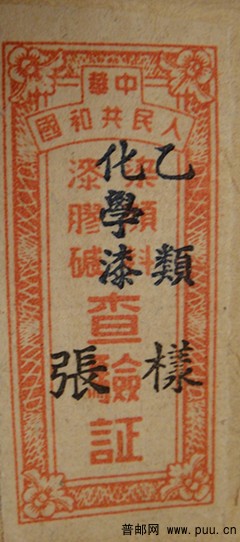 中華
人民共和國
染顏料
漆膠碱
查驗証
乙類
化學漆
樣張
普邮网 www.puu.cn